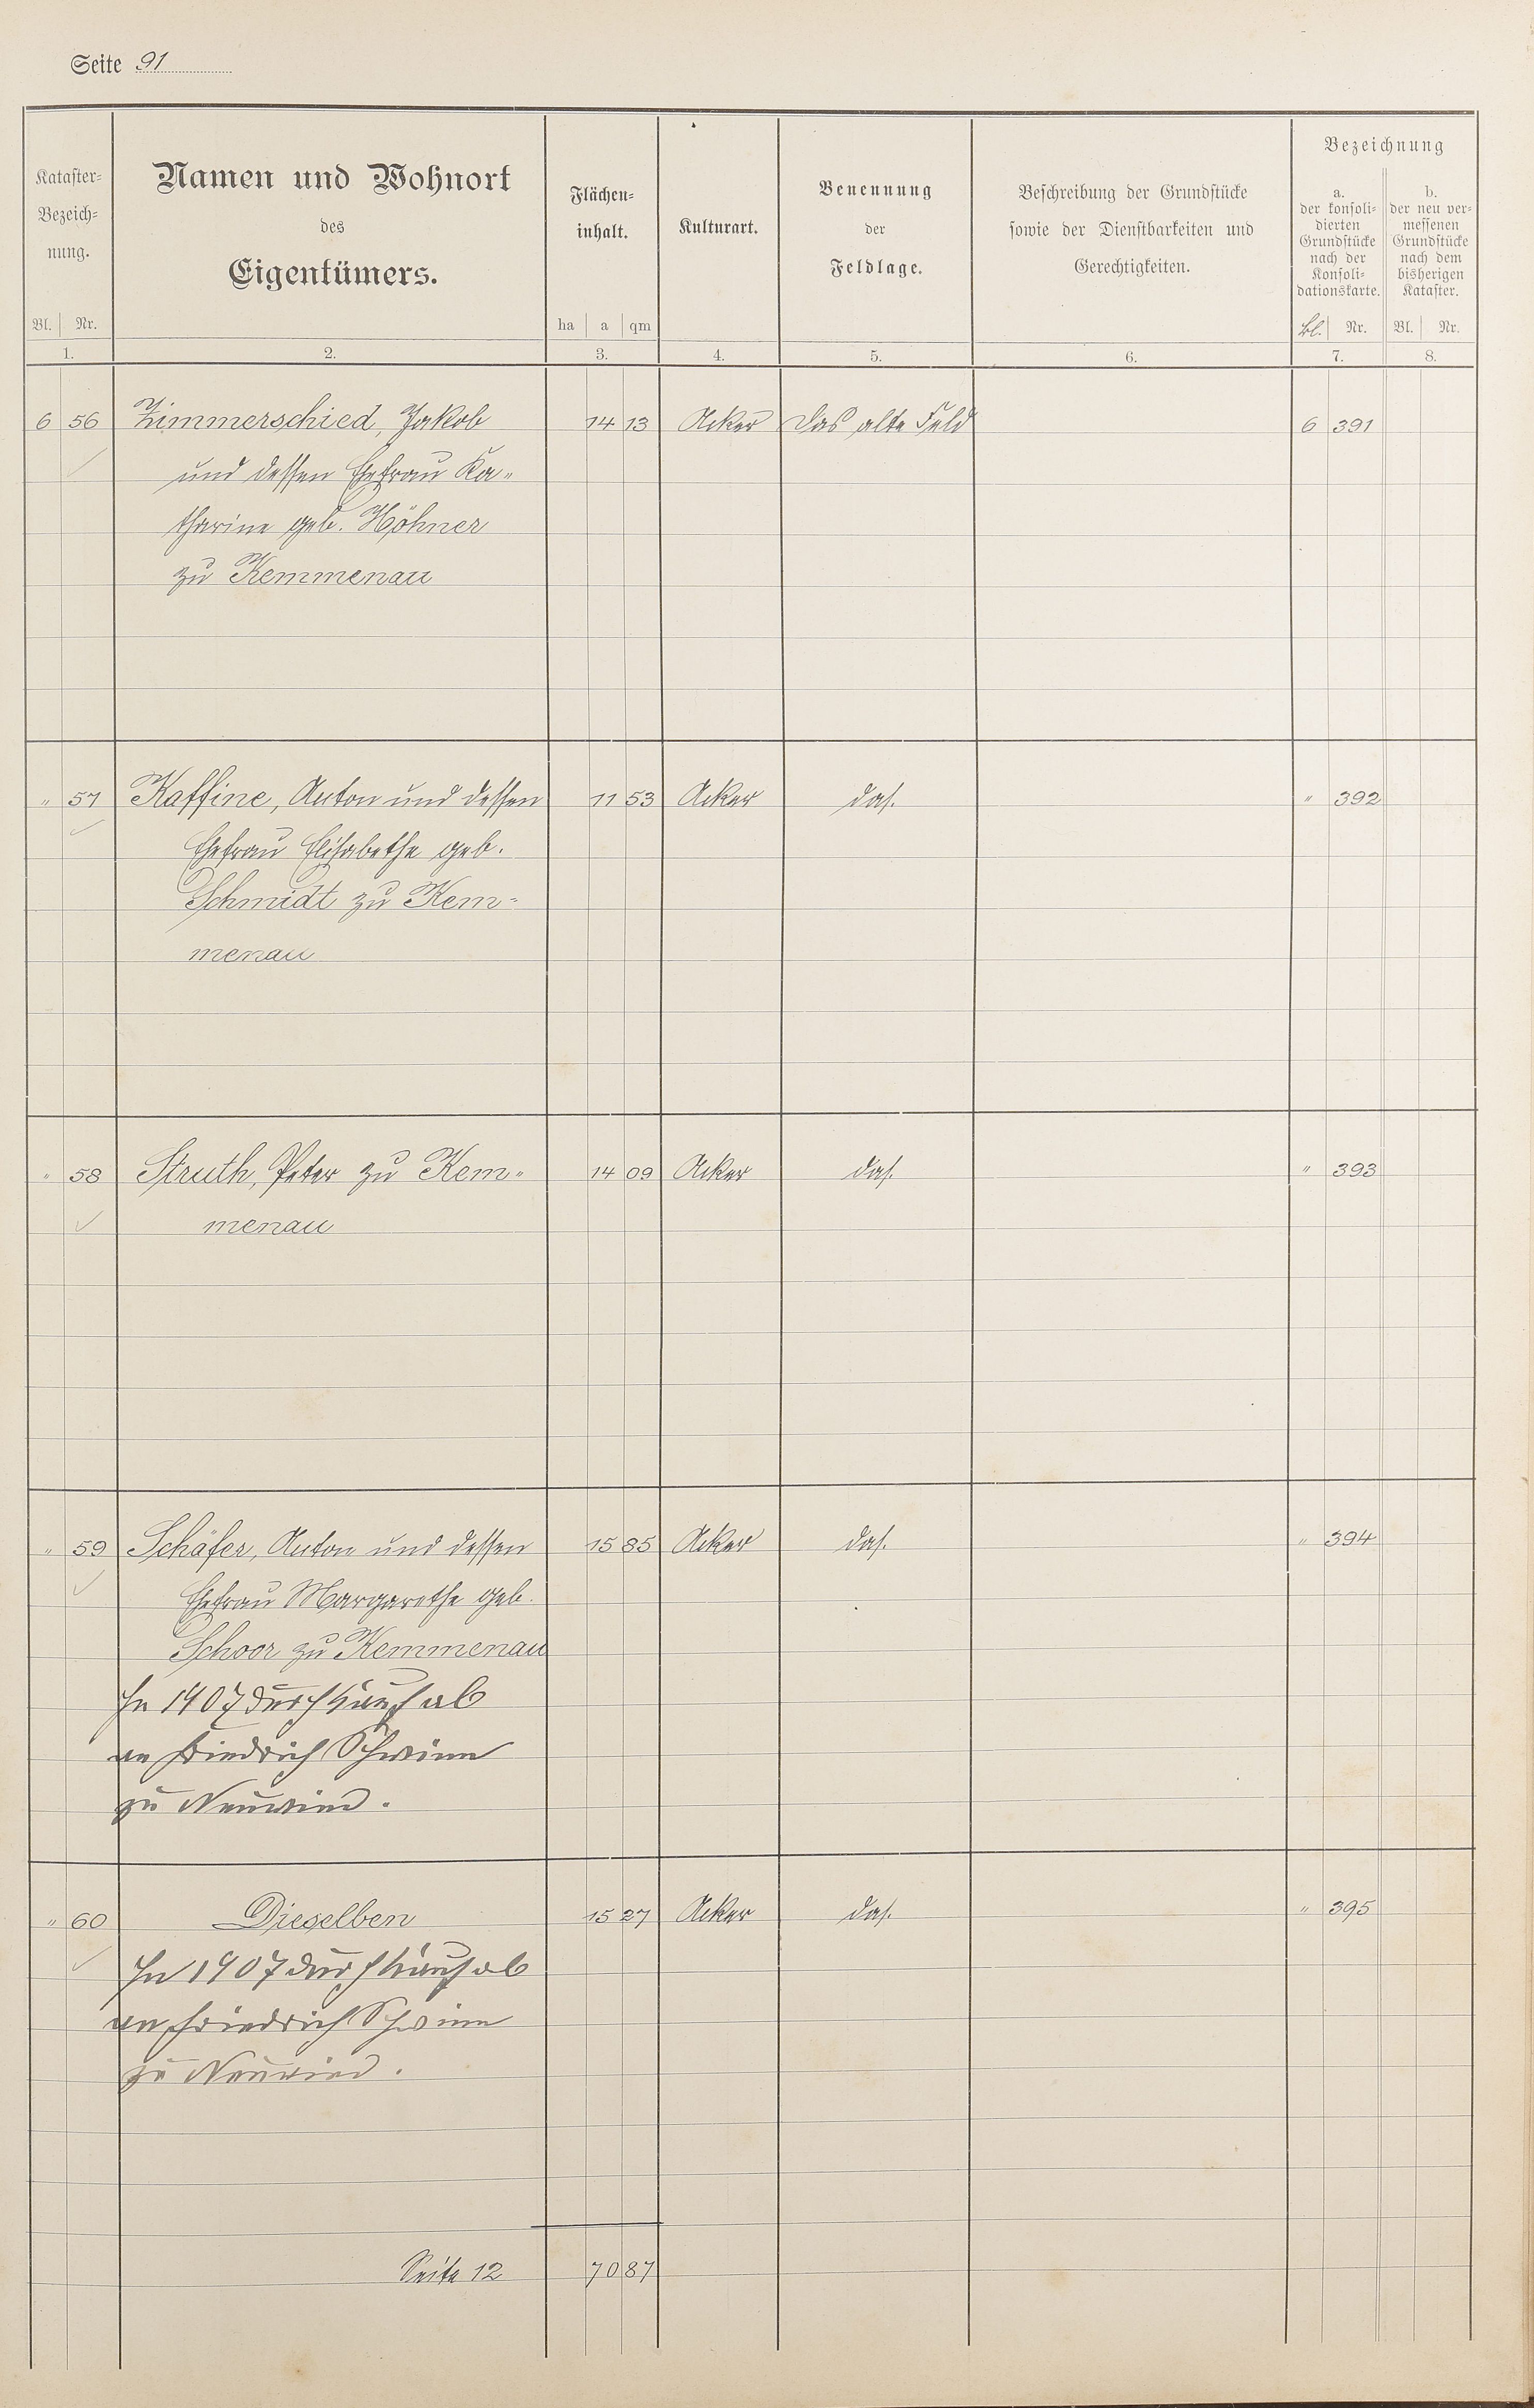 Seite 91
Kataster-
Bezeich-
nung.
Bl. Nr.
1.
Namen und Wohnort
des
Eigentümers.
2.
Flächen-
inhalt.
ha a qm
3.
Kulturart.
4.
Benennung
der
Feldlage.
5.
Beschreibung der Grundstücke
sowie der Dienstbarkeiten und
Gerechtigkeiten.
6.
Bezeichnung
a.
der konsoli-
dierten
Grundstücke
nach der
Konsoli-
dationskarte.
Bl. Nr.
7.
b.
der neu ver-
messenen
Grundstücke
nach dem
bisherigen
Kataster.
Bl. Nr.
8.
6 56 Zimmerschied, Jakob 14 13 Acker Das alte Feld 6 391
und dessen Ehefrau Ka-
tharina geb. Höhner
zu Kemmenau
" 57 Kaffine, Anton und dessen 11 53 Acker das. " 392
Ehefrau Elisabethe geb.
Schmidt zu Kem-
menau
" 58 Struth, Peter zu Kem- 14 09 Acker das. " 393
menau
" 59 Schäfer, Anton und dessen 15 85 Acker das. " 394
Ehefrau Margarethe geb.
Schoor zu Kemmenau
In 1907 durch Kauf ab
an Friedrich Schwinn
zu Neuwied.
" 60 Dieselben 15 27 Acker das. " 395
In 1907 durch Kauf ab
an Friedrich Schwinn
zu Neuwied.
Seite 12 70 87